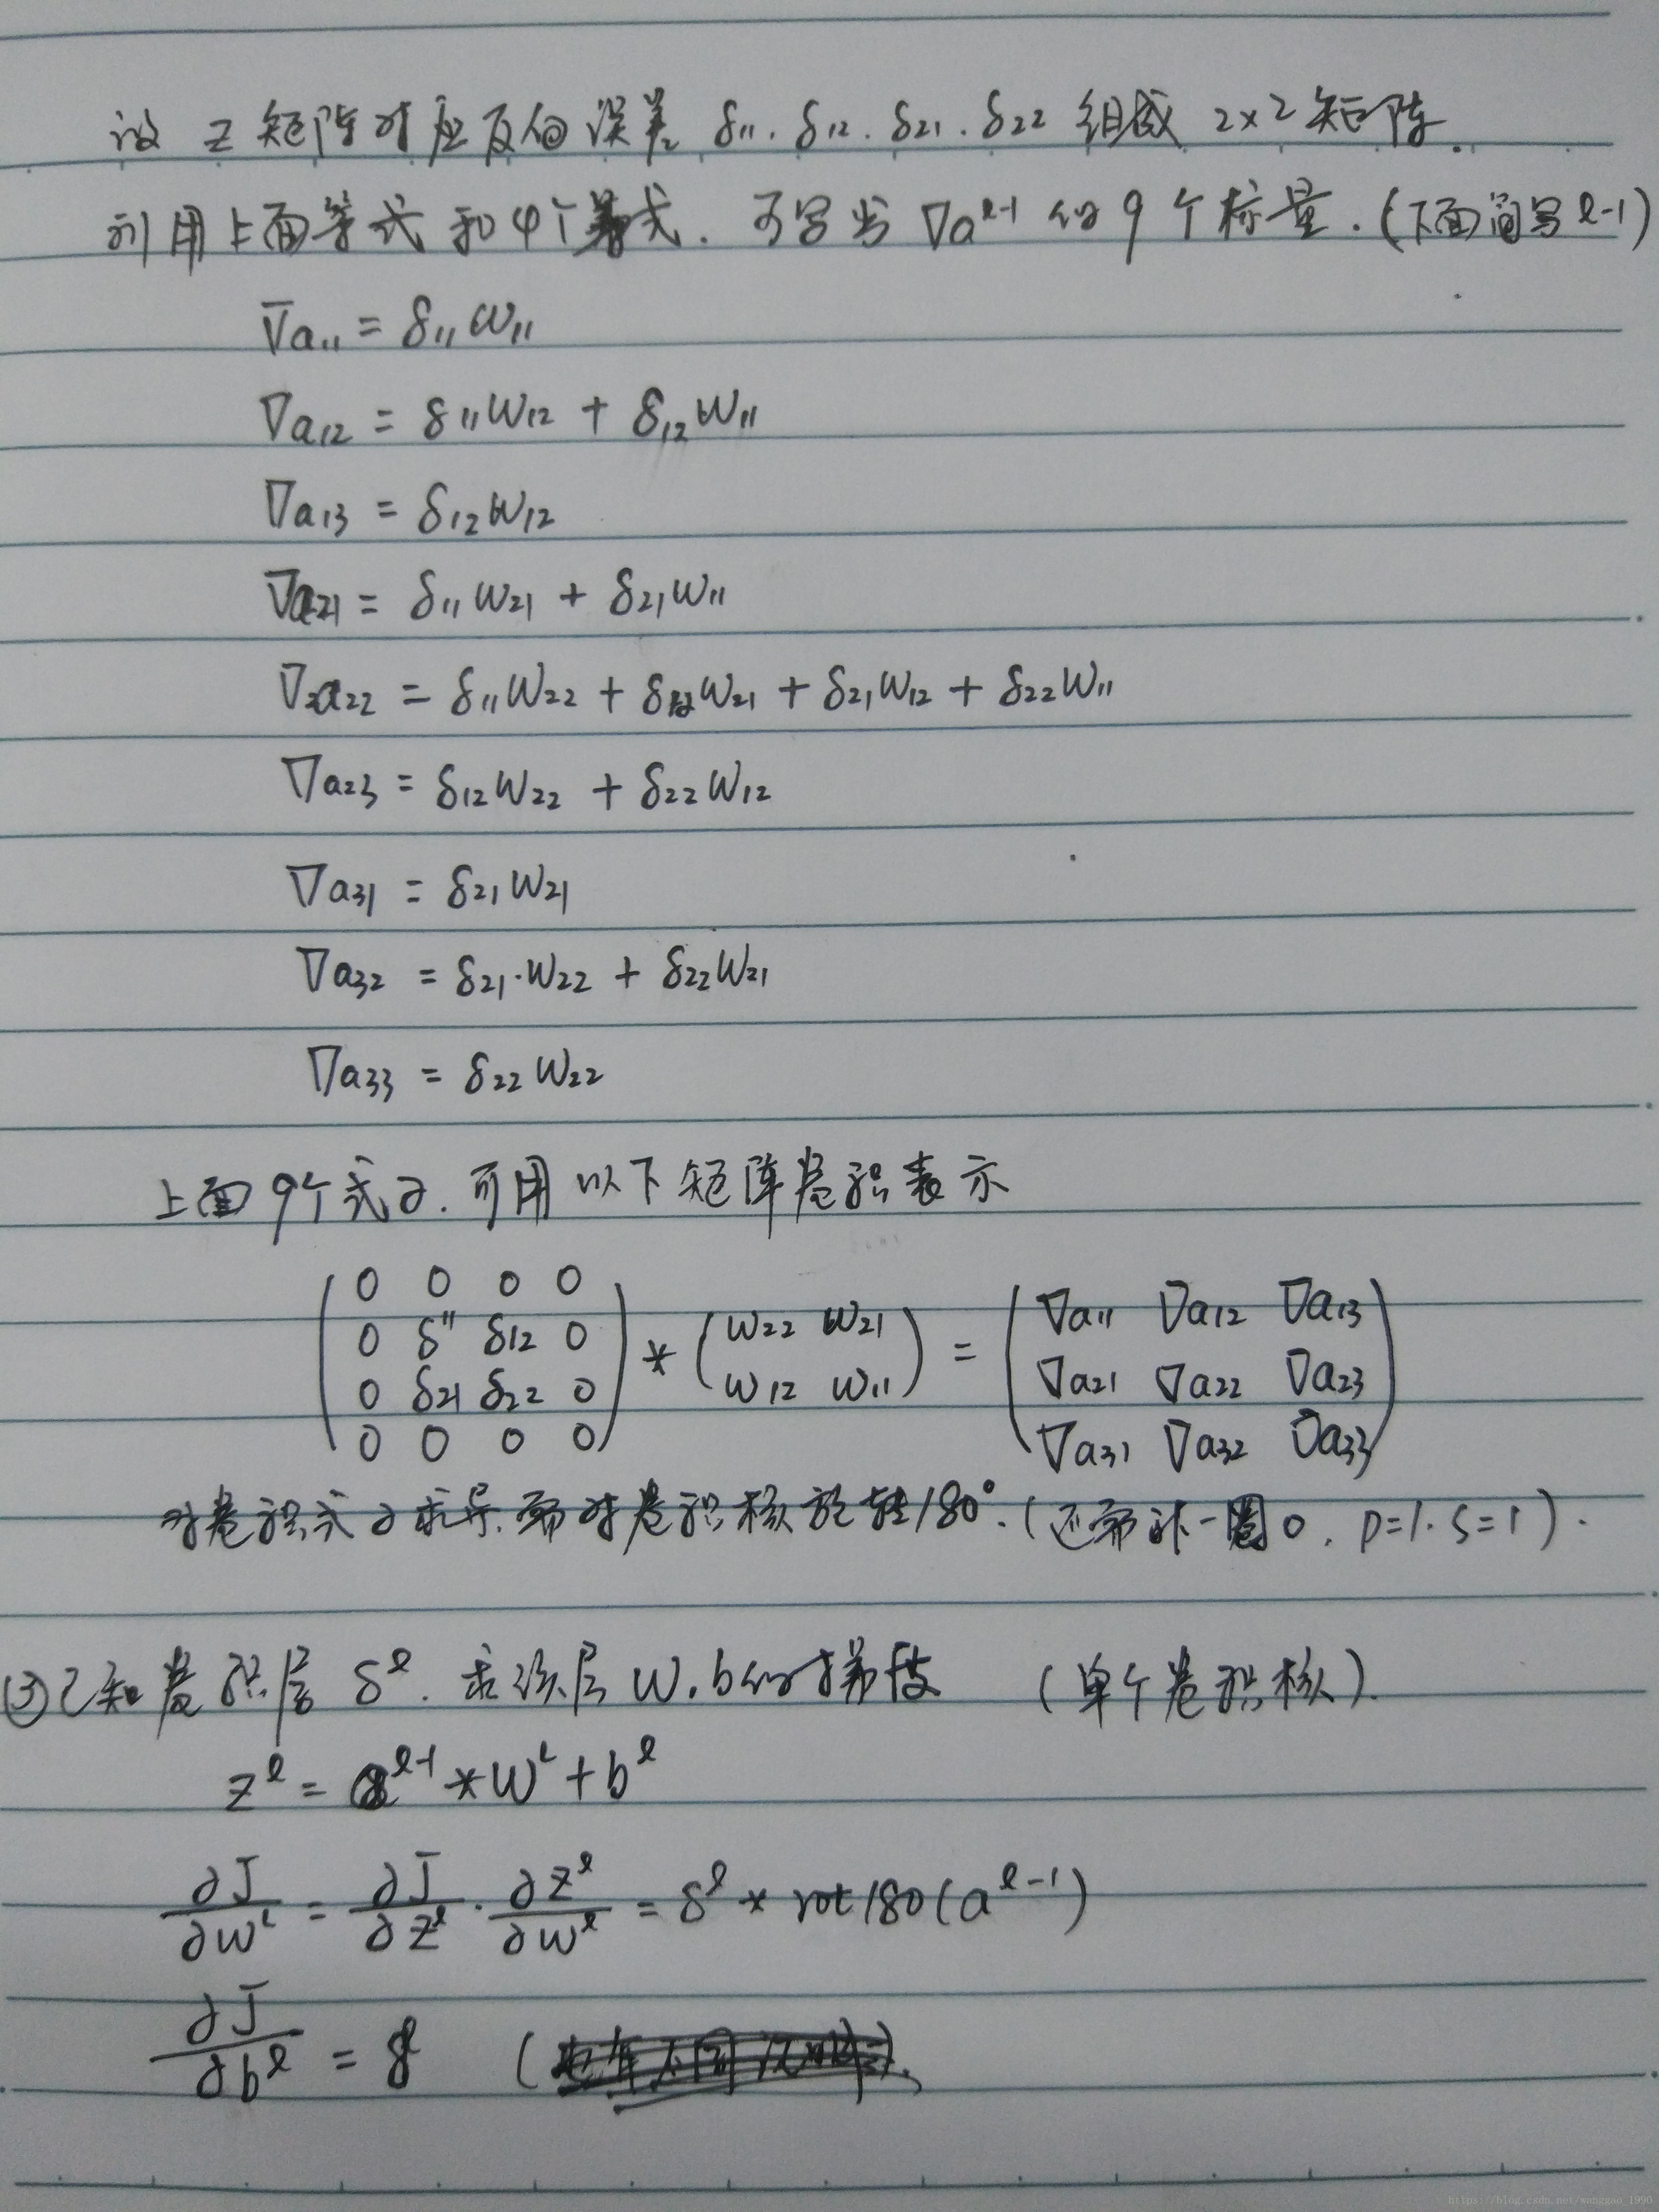 设 z 矩阵对应反向误差 δ11. δ12. δ21. δ22 组成 2×2 矩阵.
利用上面等式和4个等式. 可写出 ∇a^{l-1} 的 9 个标量. (下面简写 l-1)
∇a11 = δ11 w11
∇a12 = δ11 w12 + δ12 w11
∇a13 = δ12 w12
∇a21 = δ11 w21 + δ21 w11
∇a22 = δ11 w22 + δ12 w21 + δ21 w12 + δ22 w11
∇a23 = δ12 w22 + δ22 w12
∇a31 = δ21 w21
∇a32 = δ21·w22 + δ22 w21
∇a33 = δ22 w22
上面 9个式子. 可用 以下矩阵卷积表示
0 0 0 0
0 δ11 δ12 0 * ( w22 w21 = ∇a11 ∇a12 ∇a13
0 δ21 δ22 0 w12 w11 ) ∇a21 ∇a22 ∇a23
0 0 0 0 ∇a31 ∇a32 ∇a33
对卷积式子求导. 需对卷积核旋转180°. (还需补一圈0, p=1. s=1).
③已知卷积层 δ^l. 求该层 W,b的梯度 (单个卷积核).
z^l = a^{l-1} * W^l + b^l
∂J/∂w^l = ∂J/∂z^l · ∂z^l/∂w^l = δ^l * rot180(a^{l-1})
∂J/∂b^l = δ^l (
https://blog.csdn.net/wanggao_1990